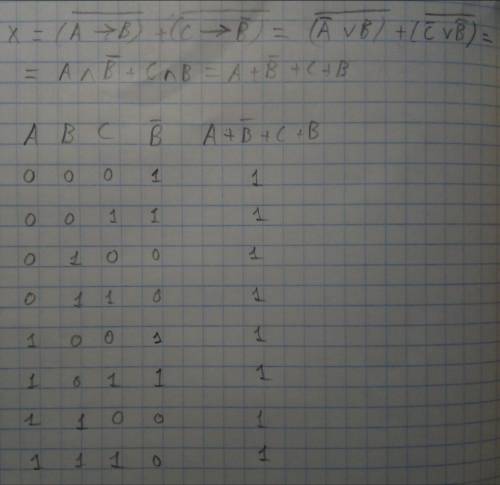 X = (\overline{A → B}) + (\overline{C → \bar{B}}) = (\overline{\bar{A} ∨ B}) + (\overline{\bar{C} ∨ \bar{B}}) =
= A ∧ B̅ + C ∧ B = A + B̅ + C + B
A B C B̅ A + B̅ + C + B
0 0 0 1 1
0 0 1 1 1
0 1 0 0 1
0 1 1 0 1
1 0 0 1 1
1 0 1 1 1
1 1 0 0 1
1 1 1 0 1